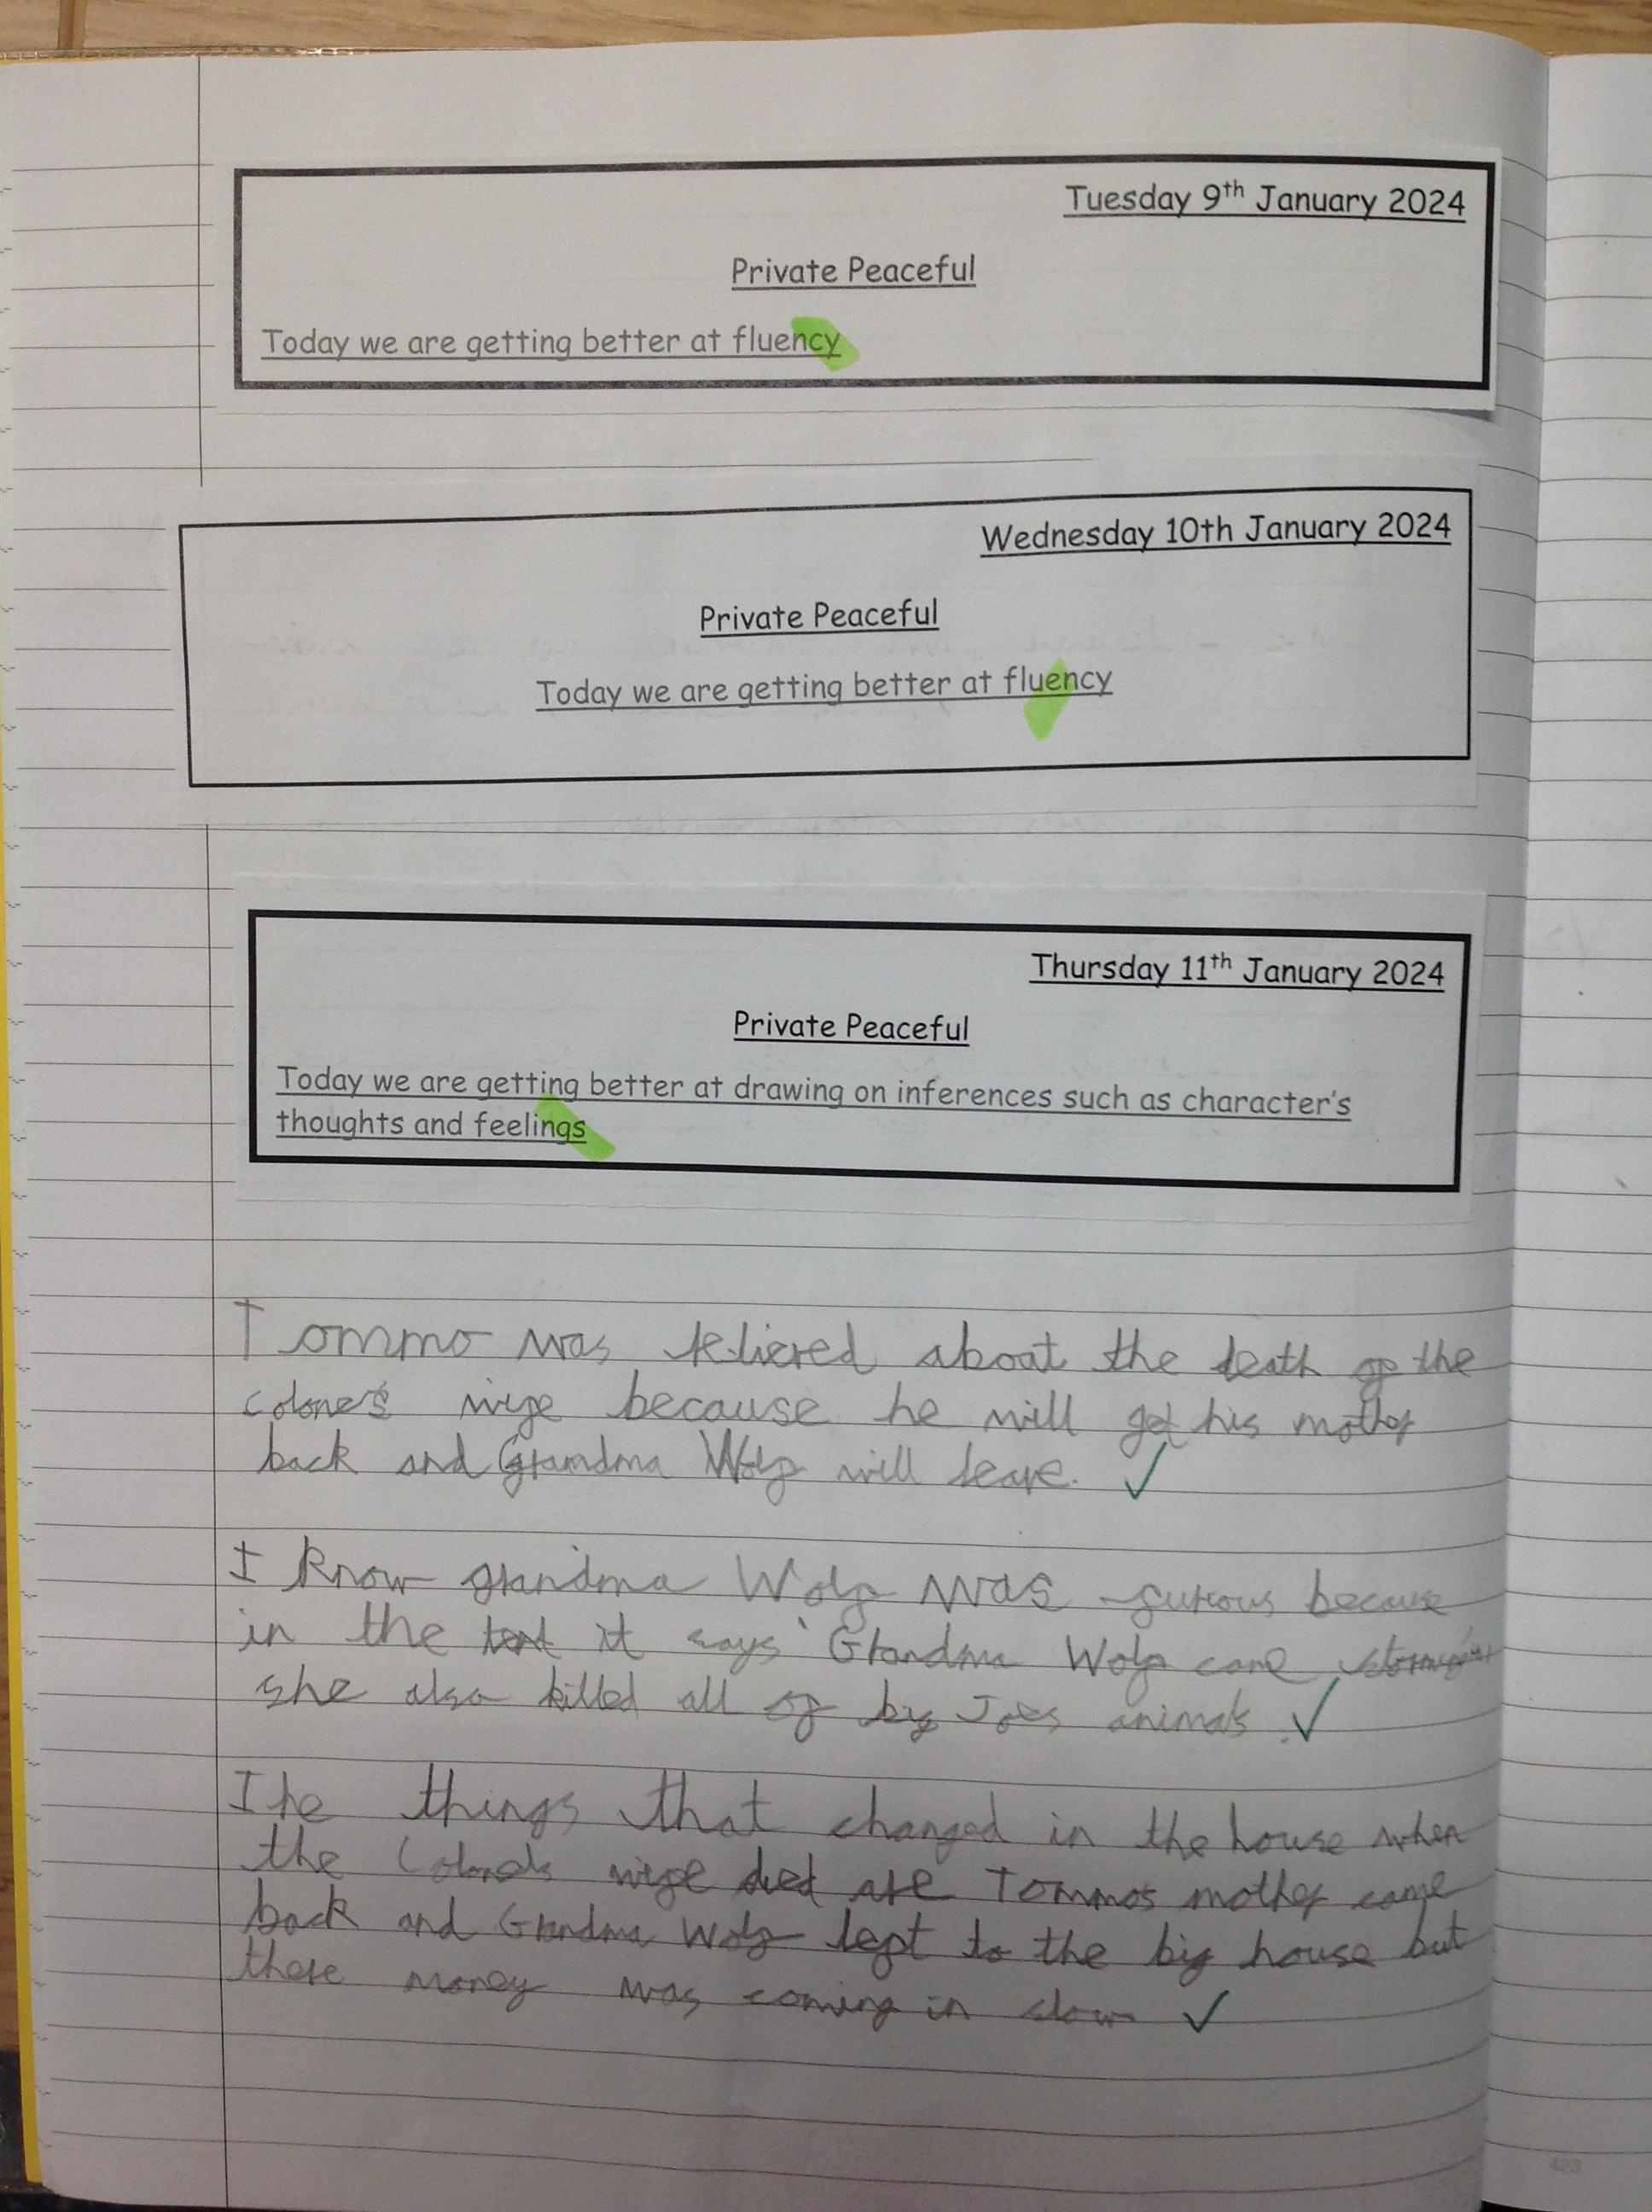 Tuesday 9th January 2024
Private Peaceful
Today we are getting better at fluency
Wednesday 10th January 2024
Private Peaceful
Today we are getting better at fluency
Thursday 11th January 2024
Private Peaceful
Today we are getting better at drawing on inferences such as character's
thoughts and feelings
Tommo was relieved about the death of the
colonel's wife because he will get his mother
back and Grandma Wolf will leave. ✓
I know grandma Wolf was furious because
in the text it says 'Grandma Wolf came
she also killed all of big Joes animals. ✓
The things that changed in the house when
the Colonels wife died are Tommo's mother came
back and Grandma Wolf left to the big house but
there money was coming in slow ✓
423